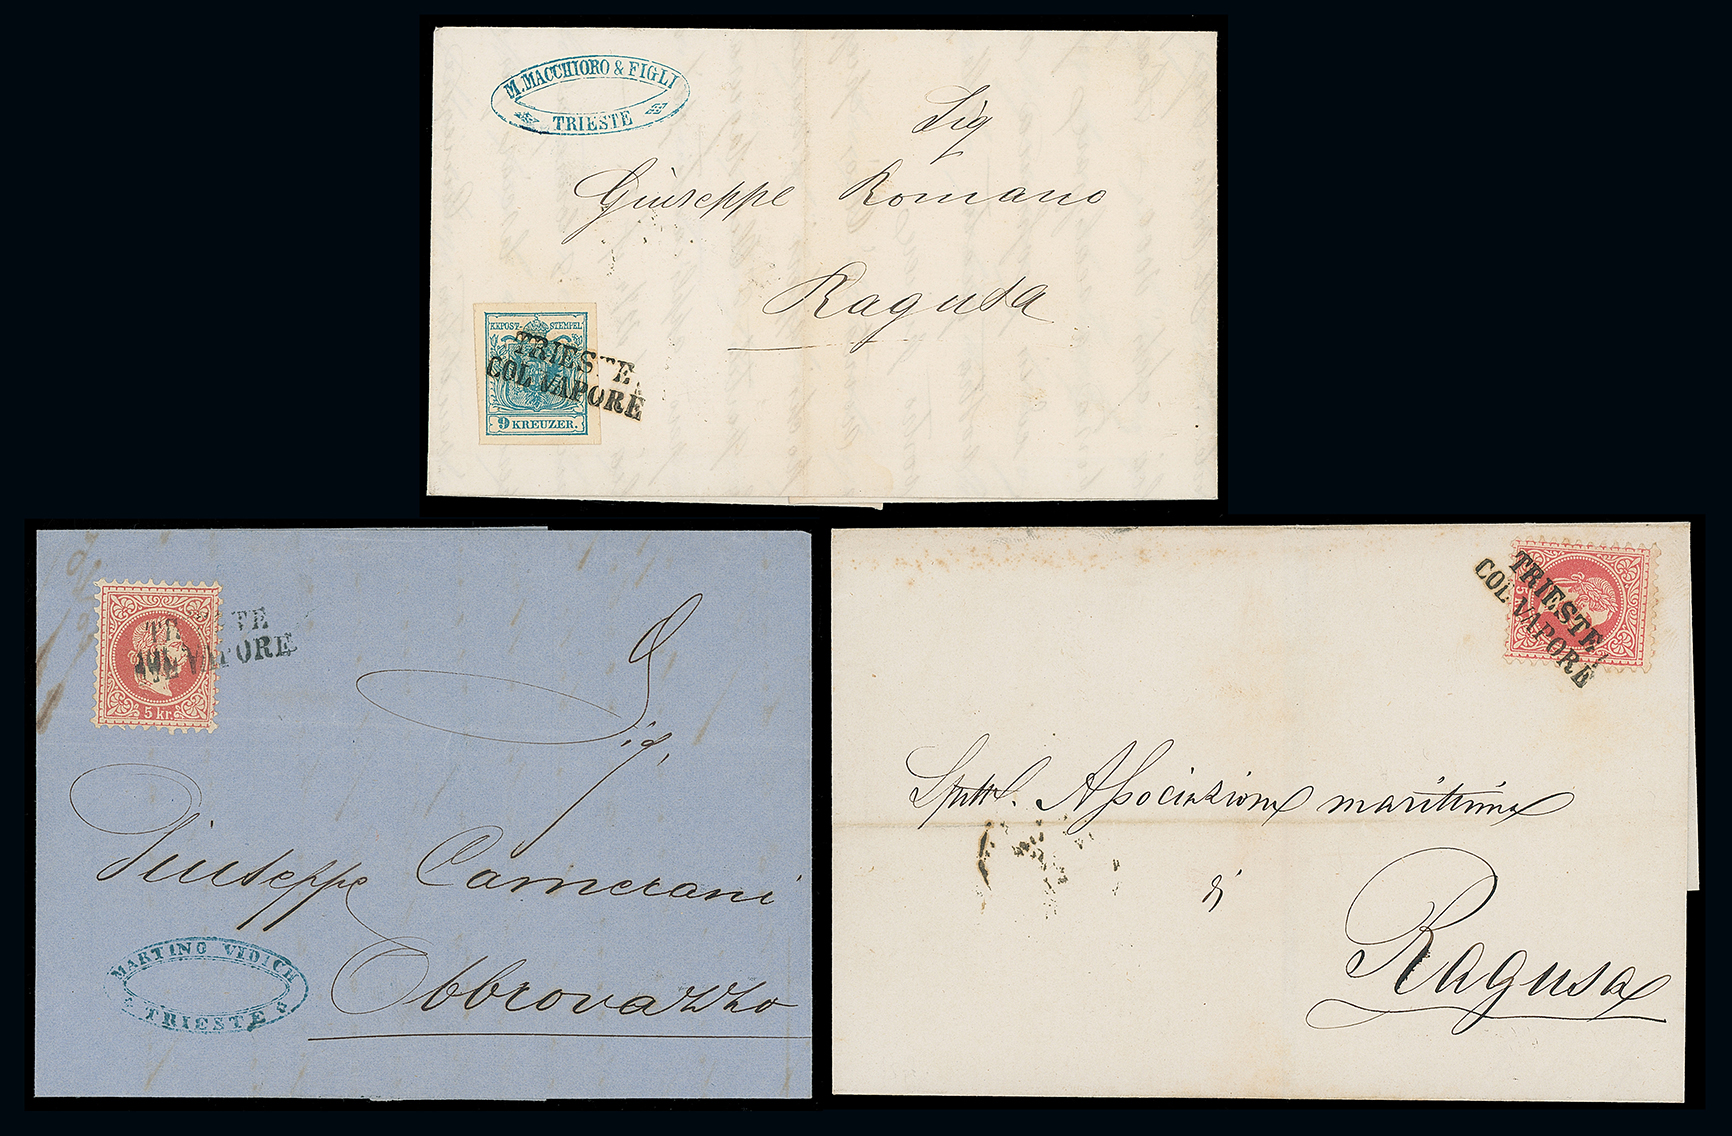 M. MACCHIORO & FIGLI
TRIESTE
Sig
Giuseppe Romano
Ragusa
KKPOST-STEMPEL
TRIESTE
COL VAPORE
9 KREUZER.
TRIESTE
COL VAPORE
5 kr.
Sig.
Giuseppe Camerani
Obbrovazzo
MARTINO VIDICH
TRIESTE
TRIESTE
COL VAPORE
5
Spett. Associazione marittima
di
Ragusa